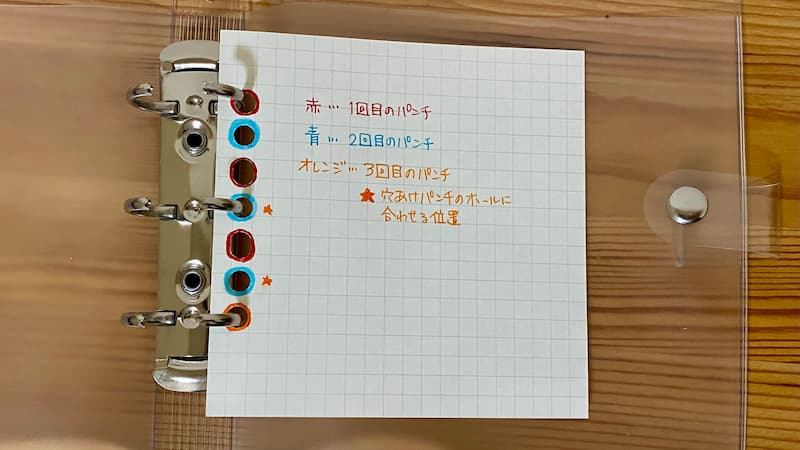 赤… 1回目のパンチ
青… 2回目のパンチ
オレンジ… 3回目のパンチ
★ 穴あけパンチのホールに
合わせる位置